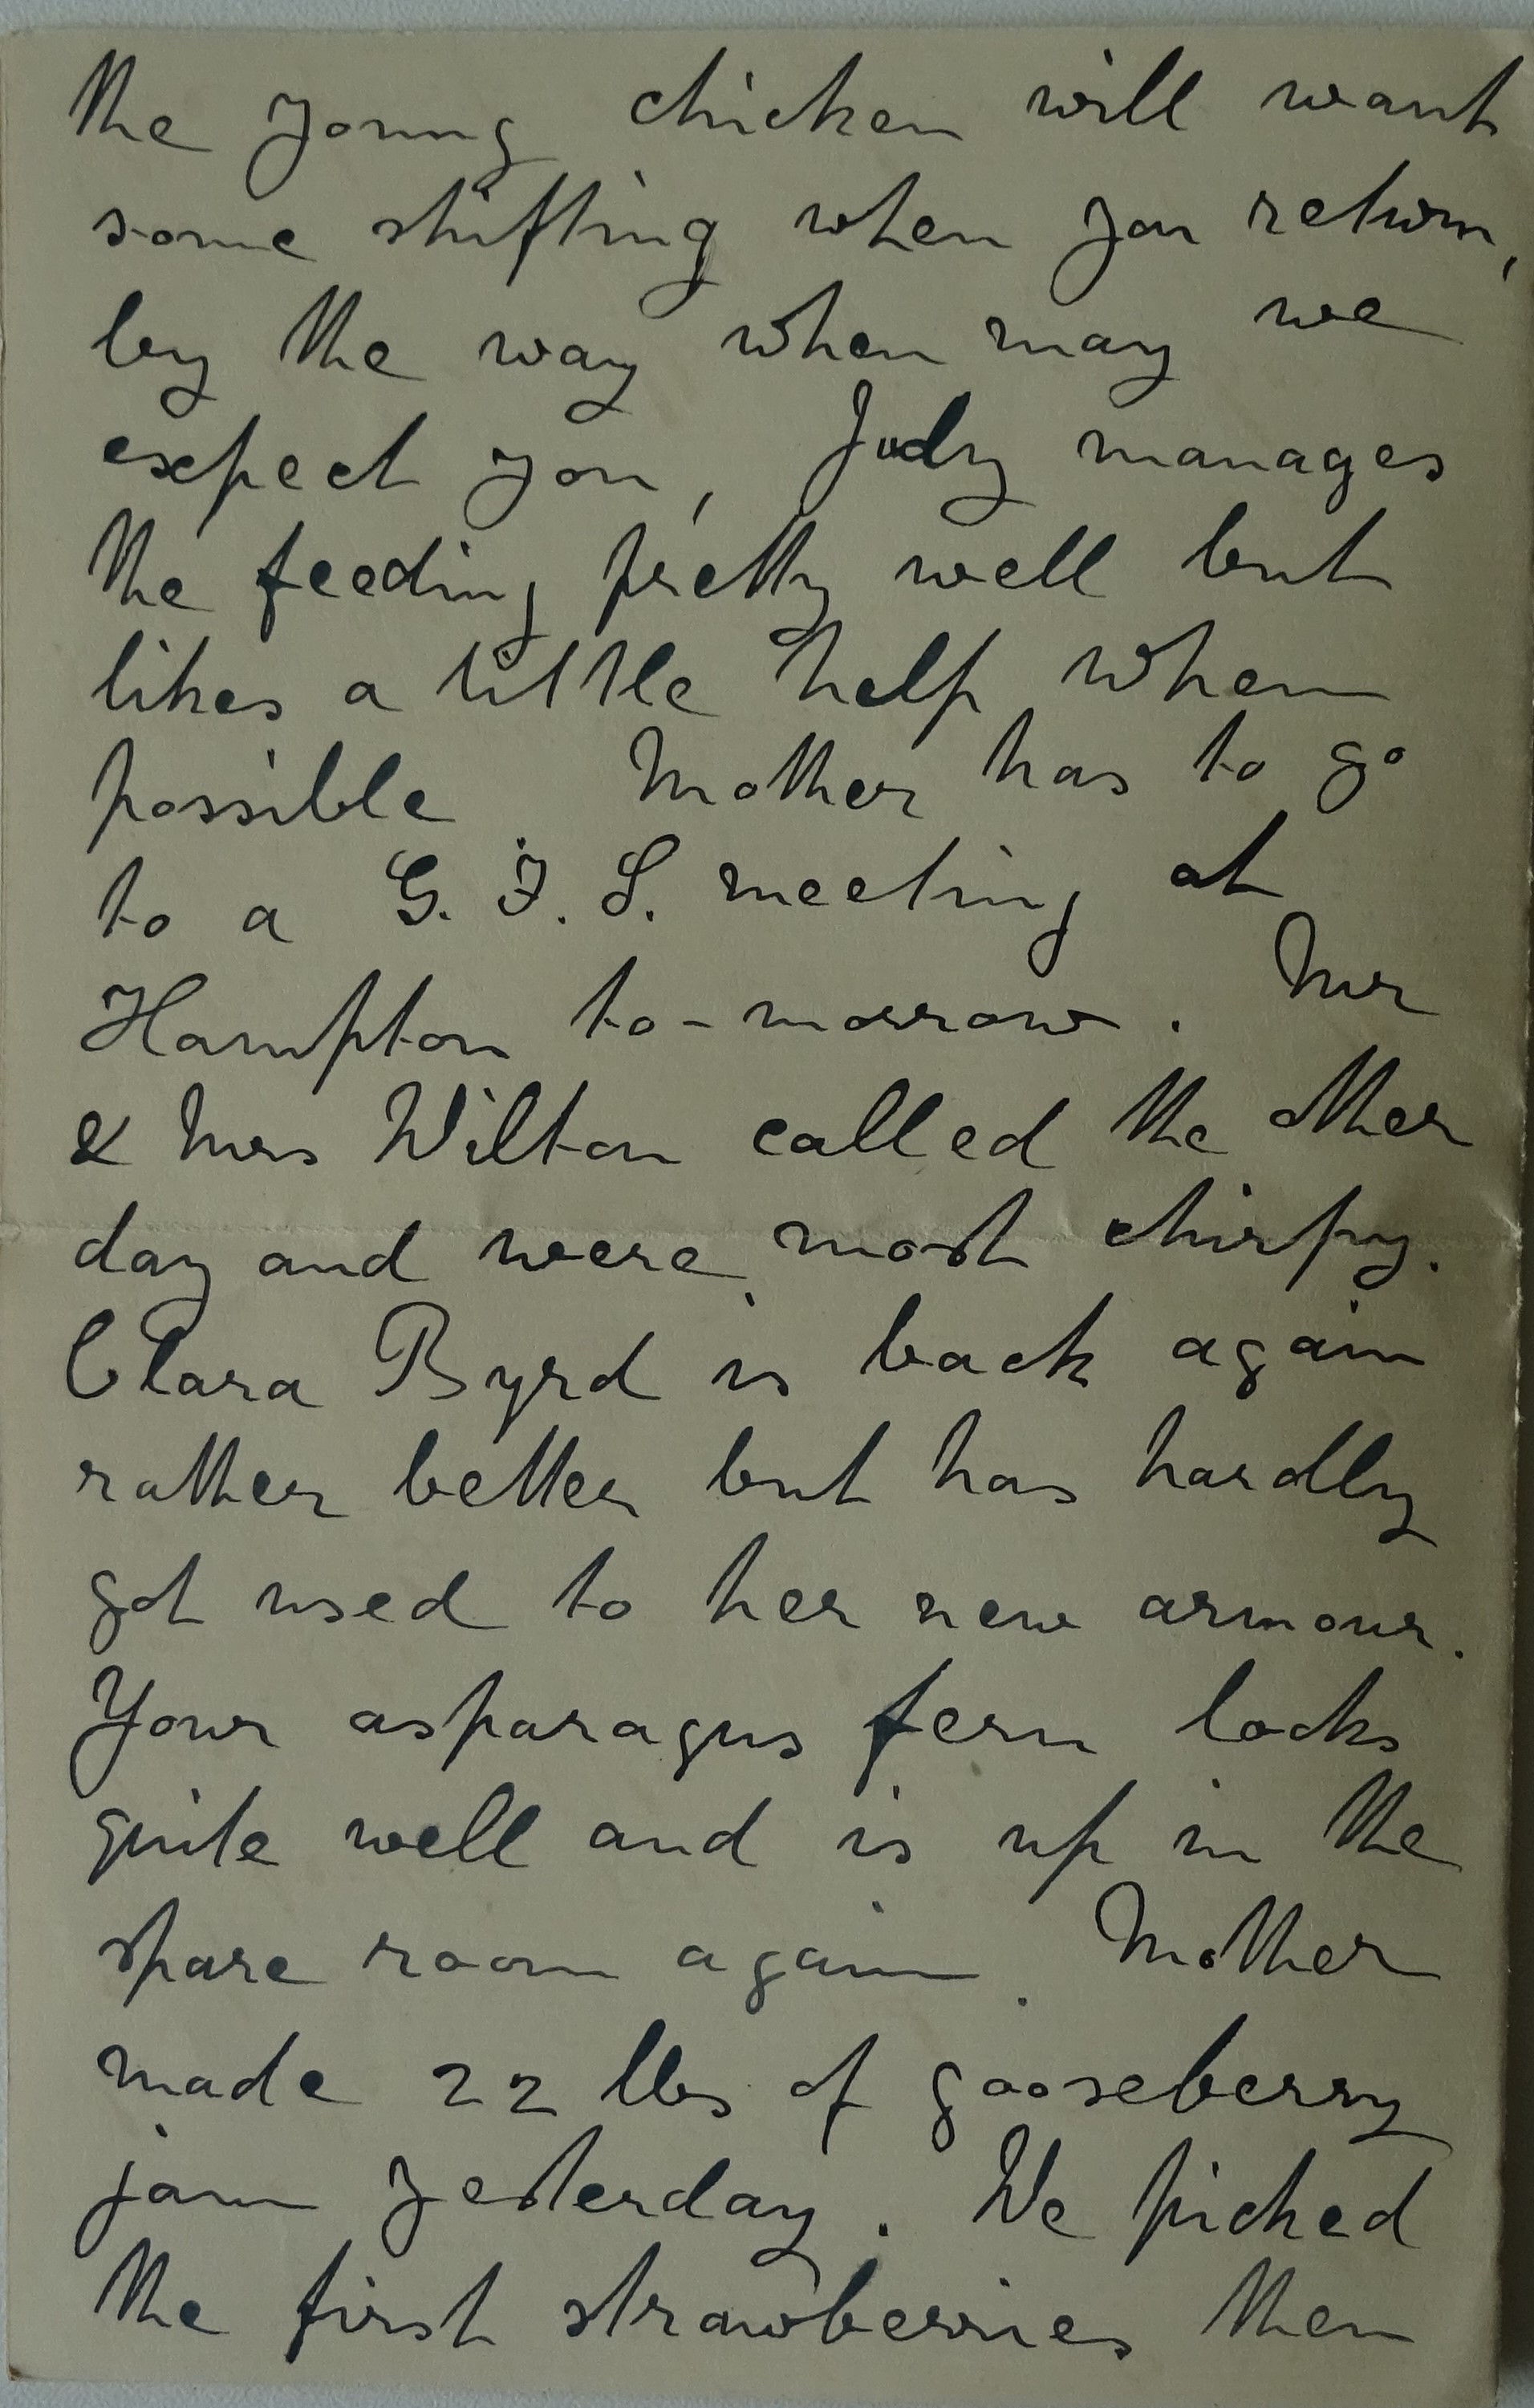 the young chicken will want
some shifting when you return,
by the way when may we
expect you, Judy manages
the feeding pretty well but
likes a little help when
possible Mother has to go
to a G. F. S. meeting at
Hampton to-morrow. Mr
& Mrs Wilton called the other
day and were most chirpy.
Clara Byrd is back again
rather better but has hardly
got used to her new armour.
Your asparagus fern looks
quite well and is up in the
spare room again. Mother
made 22 lbs of gooseberry
jam yesterday. We picked
the first strawberries then